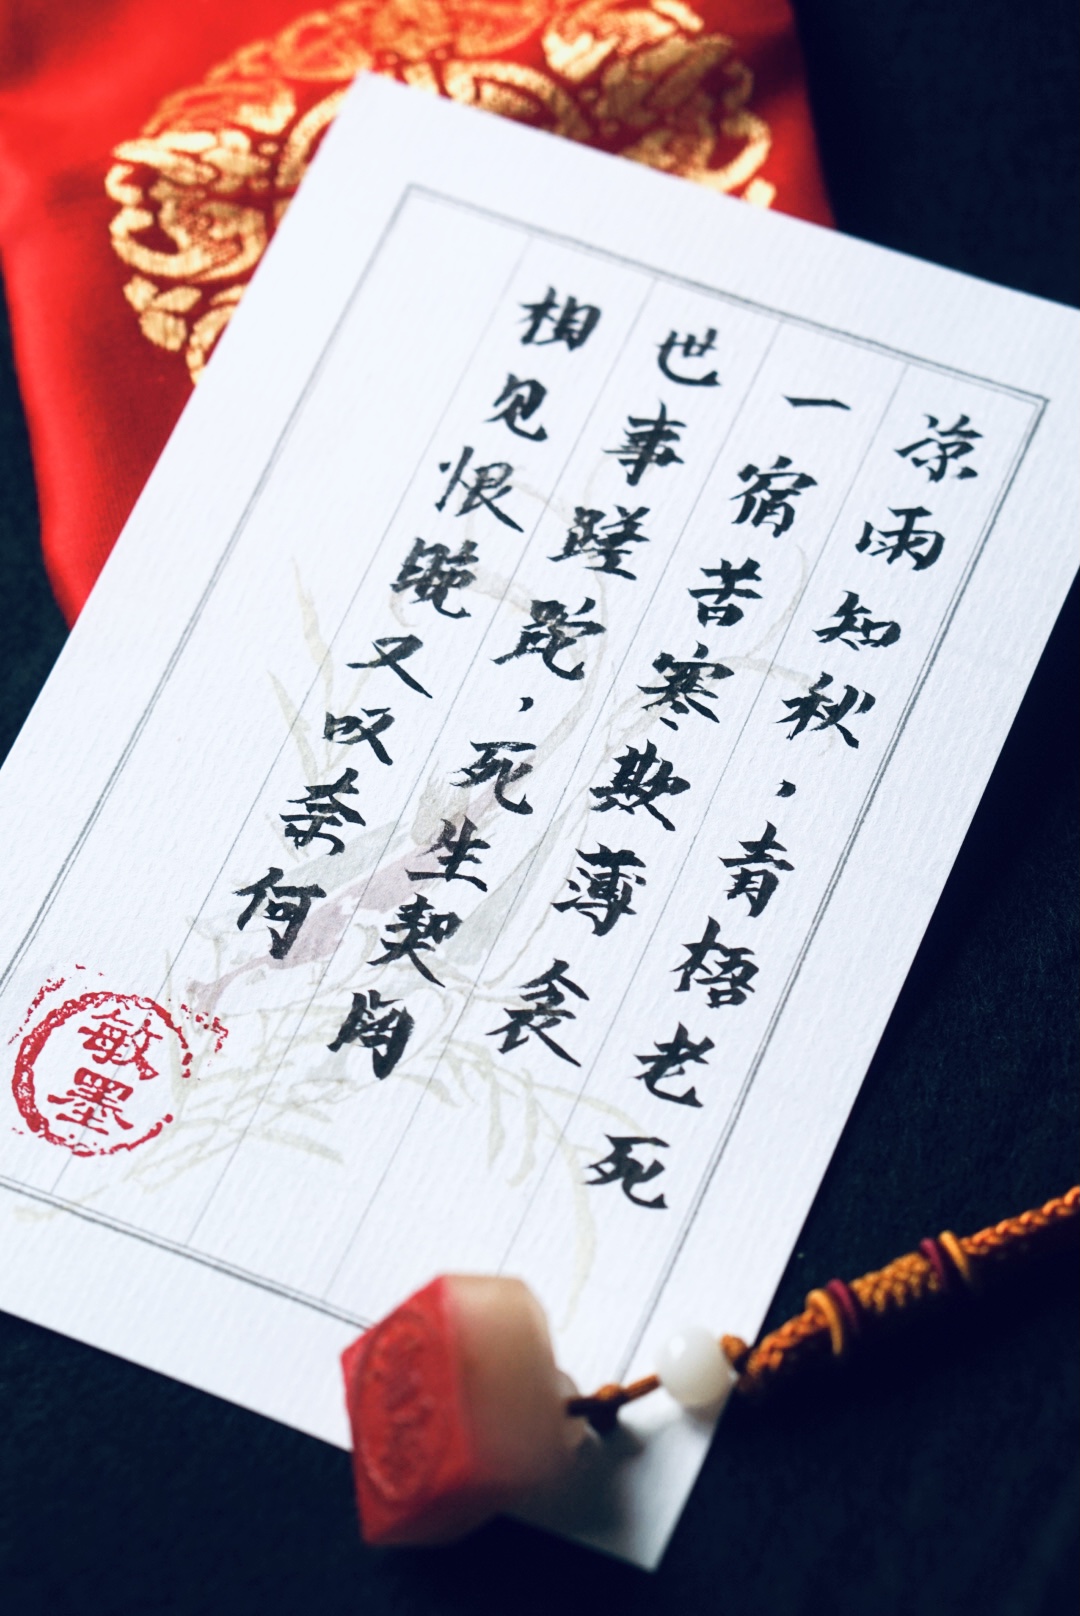 凉雨知秋，青梧老死
一宿苦寒欺薄衾
世事蹉跎，死生契阔
相见恨晚又叹奈何
敏墨